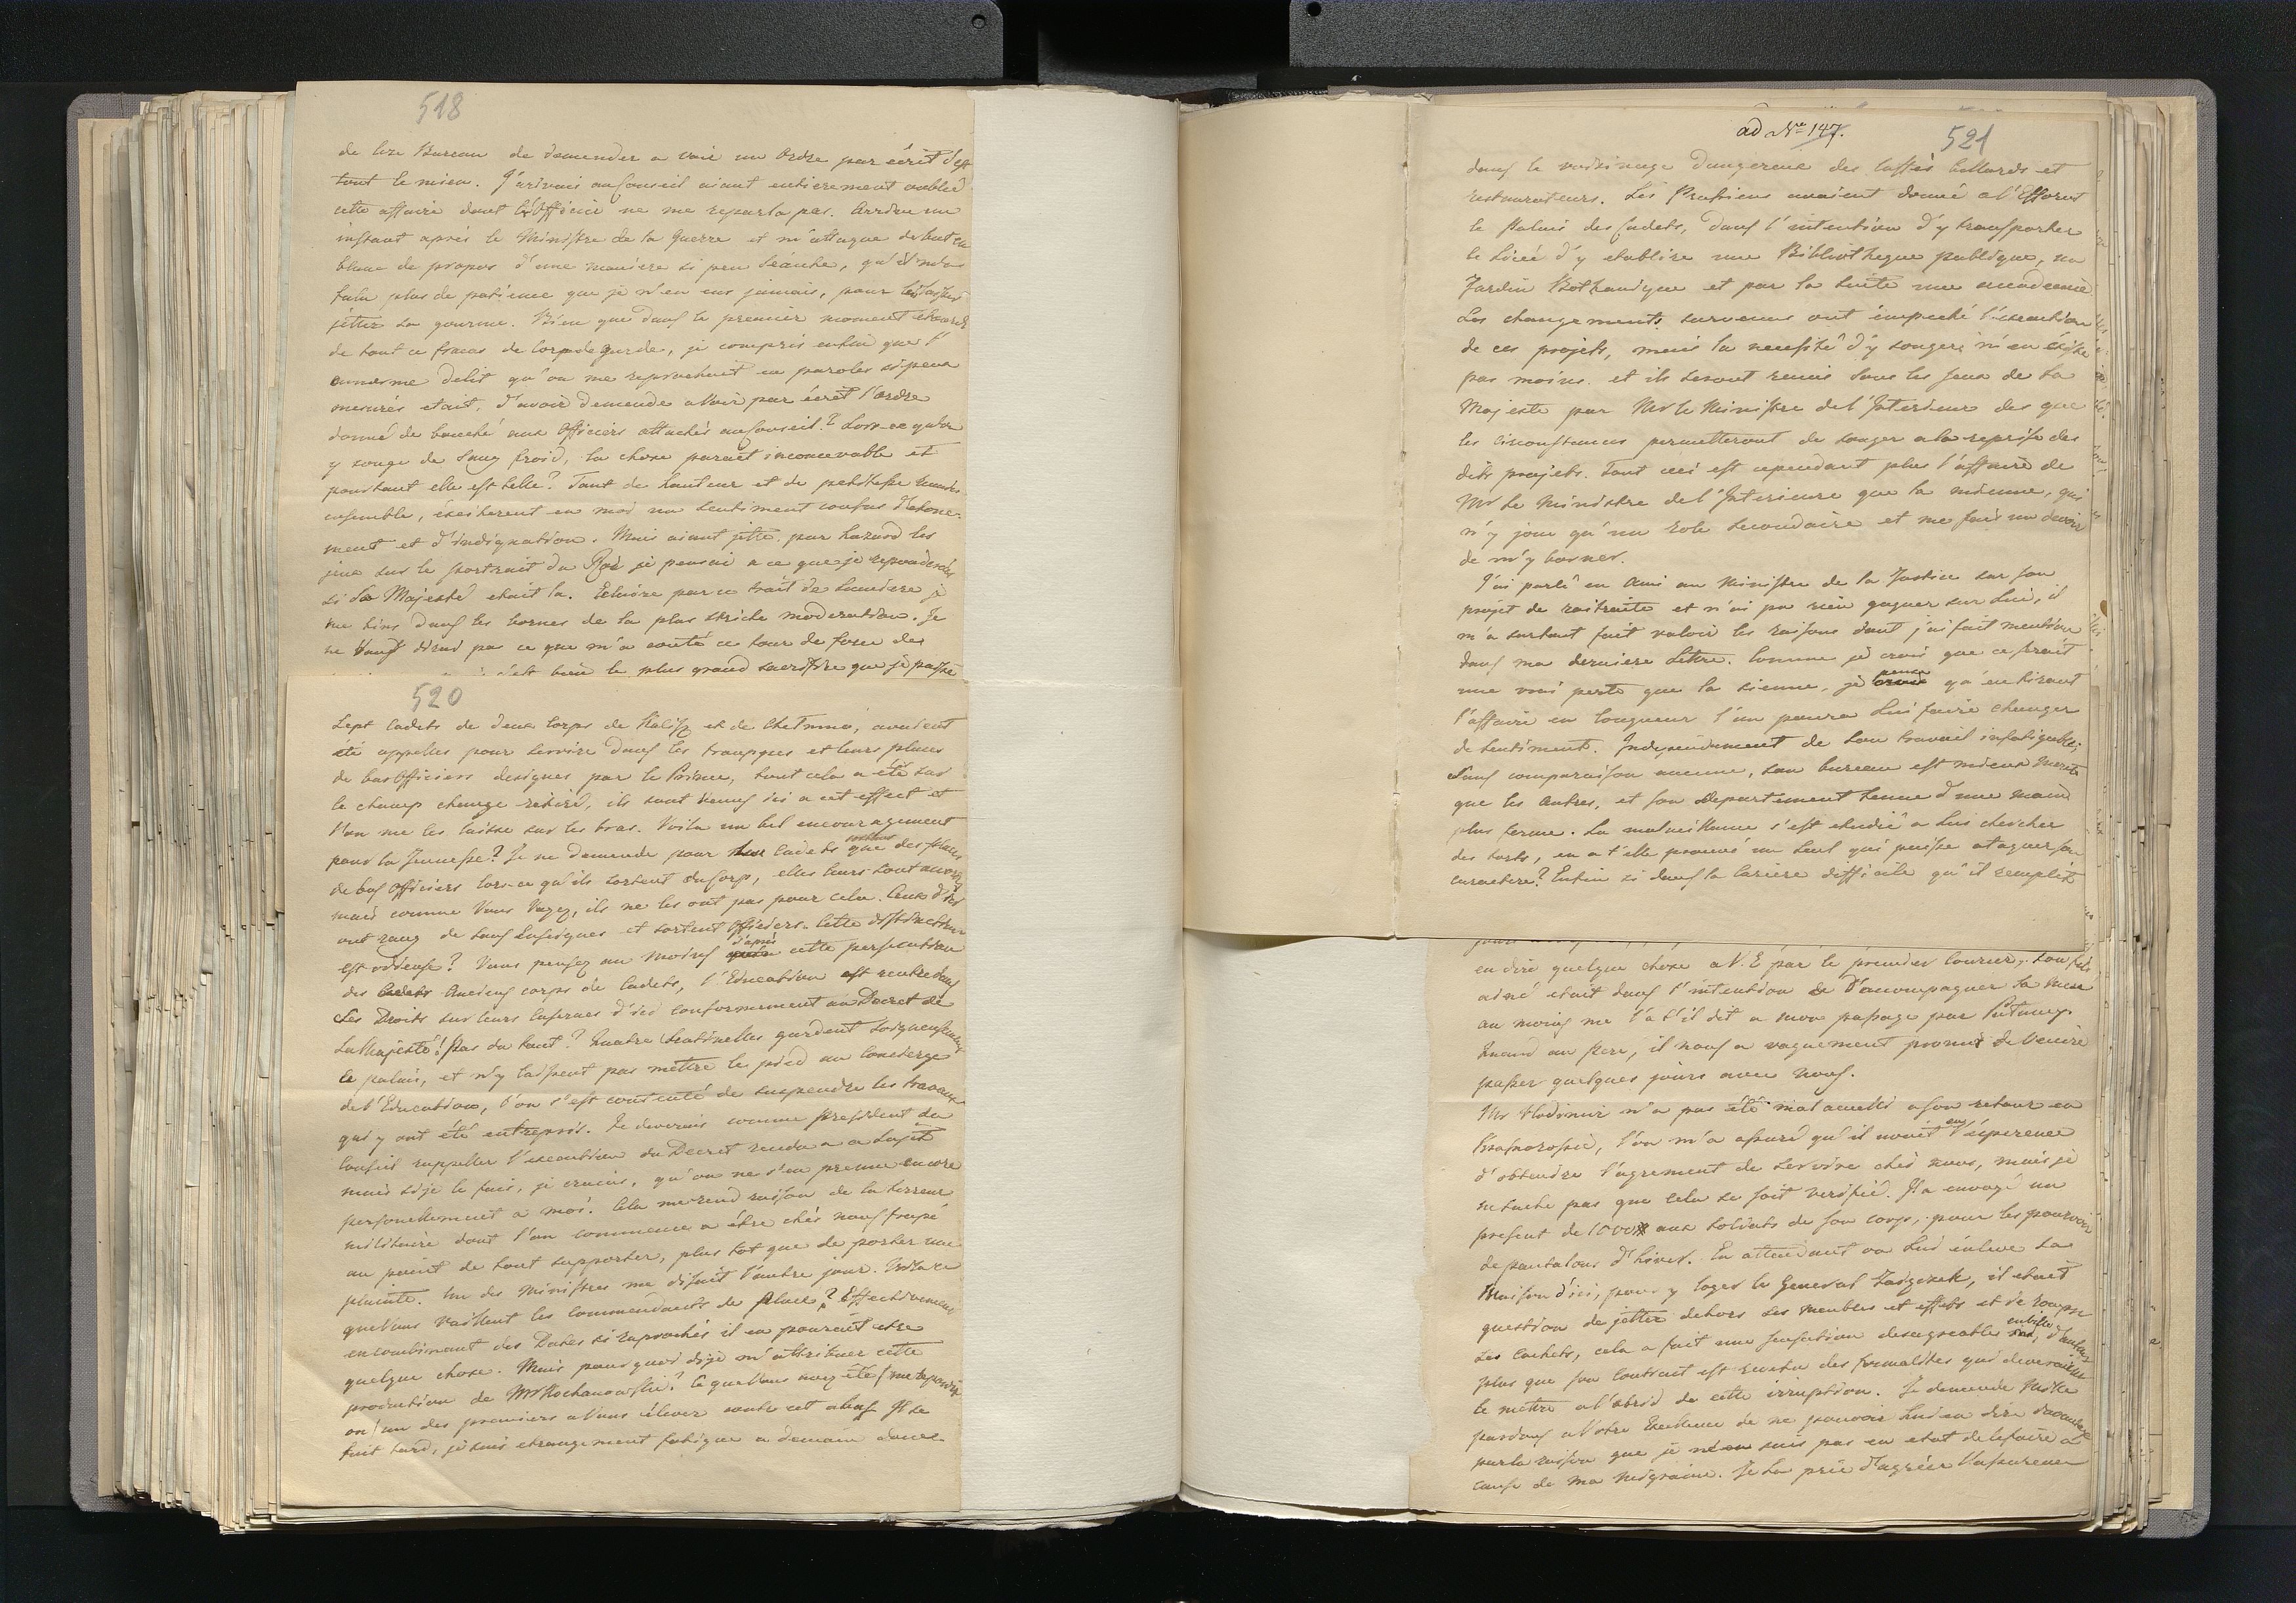 518
de lire Bureau de demender a voir un Ordre par écrit s'est
tout le mien. J'arivais au Conseil aiant entierement oublié
cette affaire dont l'Officier ne me reparla pas. Arriva un
instant après le Ministre de la Guerre et m'attaque de but en
blanc de propos d'une maniere si peu séante, qu'il m'a
falu plus de patience que je n'en eus jamais, pour
jetter sa gourme. Bien que dans le premier moment
de tout ce fracas de Corps de garde, je compris enfin que l'
enorme delit qu'on me reprochait en paroles si peu
mesurés etait, d'avoir demendé a voir par écrit l'ordre
donné de bouche aux Officiers attachés au Conseil? Lors-ce qu'on
y songe de sang froid, la chose parait inconcevable et
pourtant elle est telle? Tant de hauteur et de petitesse reunies
ensemble, exciterent en moi un sentiment confus d'etone-
ment et d'indignation. Mais aiant jetté par hazard les
jeux sur le portrait du Roi je pensai a ce que je repondrais
si Sa Majesté etait la. Eclairé par ce trait de lumiere je
me tins dans les bornes de la plus stricte moderation. Je
ne Vous dirai pas ce que m'a couté ce tour de force de
c'est bien le plus grand sacrifice que je puisse
520
Sept Cadets de deux Corps de Kalisz et de Chelmno, avaient
été appellés pour servire dans les trouppes et leurs places
de bas Officiers designés par le Prince, tout cela a été sur
le champ changé retiré, ils sont venus ici a cet effect et
l'on me les laisse sur les bras. Voila un bel encouragement
pour la Jeunesse? Je ne demende pour Cadets que des places
de bas Officiers lors-ce qu'ils sortent du Corps, elles leurs sont
mais comme Vous Voyez, ils ne les ont pas pour cela. Ceux d'ici
ont rang de Sous Enseignes et sortent Officiers. Cette distinction
est odieuse? Vous pensez au moins d'après cette persecution
des Anciens corps de Cadets, l'Education est rentré dans
Ses Droits sur leurs Casernes d'ici conformement au Decret de
Sa Majesté! Pas du tout? Quatre Sentinelles gardent soigneusement
le palais, et n'y laissent pas mettre le pied au Concierge
de l'Education, l'on s'est contenté de suspendre les travaux
qui y ont été entrepris. Je deverais comme President du
Conseil rappeller l'execution du Decret rendu a ce Sujet
mais si je le fais, je crains, qu'on ne s'en prenne encore
personellement a moi. Cela me rend raison de la terreur
militaire dont l'on commence a être chés nous frapé
au point de tout supporter, plus tot que de porter une
plainte. Un des Ministres me disait l'autre jour.
que Vous vaillent les Commendants de place? Effectivement
en combinant des Dates si raprochés il en pourait etre
quelque chose. Mais pourquoi dije m'attribuer cette
production de Mr Kochanowski? Ce que Vous avez été
on l'un des premiers a Vous élever contre cet abus. Il se
fait tard, je suis etrangement fatigué a demain donc.
ad Nro 147.
521
dans le voisinage dangereux des Caffés billards et
restaurateurs. Les Prussiens avaient donné a l'Efforat
le Palais des Cadets, dans l'intention d'y transporter
le Licée d'y etablire une Bibliotheque publique, un
Jardin Bothanique et par la suite une accademie
Les changements survenus ont empeché l'execution
de ces projets, mais la necessité d'y songer n'en existe
pas moins et ils seront remis sous les jeux de Sa
Majesté par Mr le Ministre de l'Interieur des que
les circonstances permetteront de songer a la reprise des
dits projets. Tout ceci est cependant plus l'affaire de
Mr le Ministre de l'Interieure que la mienne, qui
n'y joue qu'un role secondaire et me fais un devoir
de m'y borner.
J'ai parlé en Ami au Ministre de la Justice sur son
projet de raitraite et n'ai pu rien gagner sur Lui, il
m'a surtout fait valoir les raisons dont j'ai fait mention
dans ma derniere Lettre. Comme je crois que ce serait
une vrai perte que la sienne, je pense qu'en tirant
l'affaire en longueur l'on poura Lui faire changer
de sentiment. Independament de son travail infatigable;
Sans comparaison aucune, son bureau est mieux monté
que les autres, et son Departement tenue d'une main
plus ferme. La malveillance s'est etudié a Lui chercher
des torts, en a t'elle prouvé un seul qui puisse ataquer son
caractere? Enfin si dans la Cariere difficile qu'il remplit
en dire quelque chose a V.E par le premier Courier, son fils
ainé etait dans l'intention de d'acompagner Sa Mere
au moins me l'a t'il dit a mon passage par Putawy.
Quand au Pere, il nous a vaguement promis de Venire
passer quelques jours avec nous.
Mr Vlodimir n'a pas été mal acueilli a son retour en
l'on m'a assuré qu'il avait eu l'esperence
d'obtenire l'agrement de servire chés nous, mais je
ne sache pas que cela se soit verifié. Il a envoyé un
present de 1000# aux soldats de son corps, pour les pourvoir
de pantalons d'hiver. En attendant on lui enleve sa
Maison d'ici, pour y loger le General Zaiączek, il etait
question de jetter dehors ses meubles et effets et de rompre
les cachets, cela a fait une sensation desagreable en ville, d'autant
plus que son Contract est revetu des formalités qui deveraient
le mettre a l'abris de cette irruption. Je demende Mille
pardons a Votre Excellence de ne pouvoir Lui en dire davantage
par la raison que je ne suis pas en etat de le faire a
cause de ma Migraine. Je La prie d'agréer l'assurence